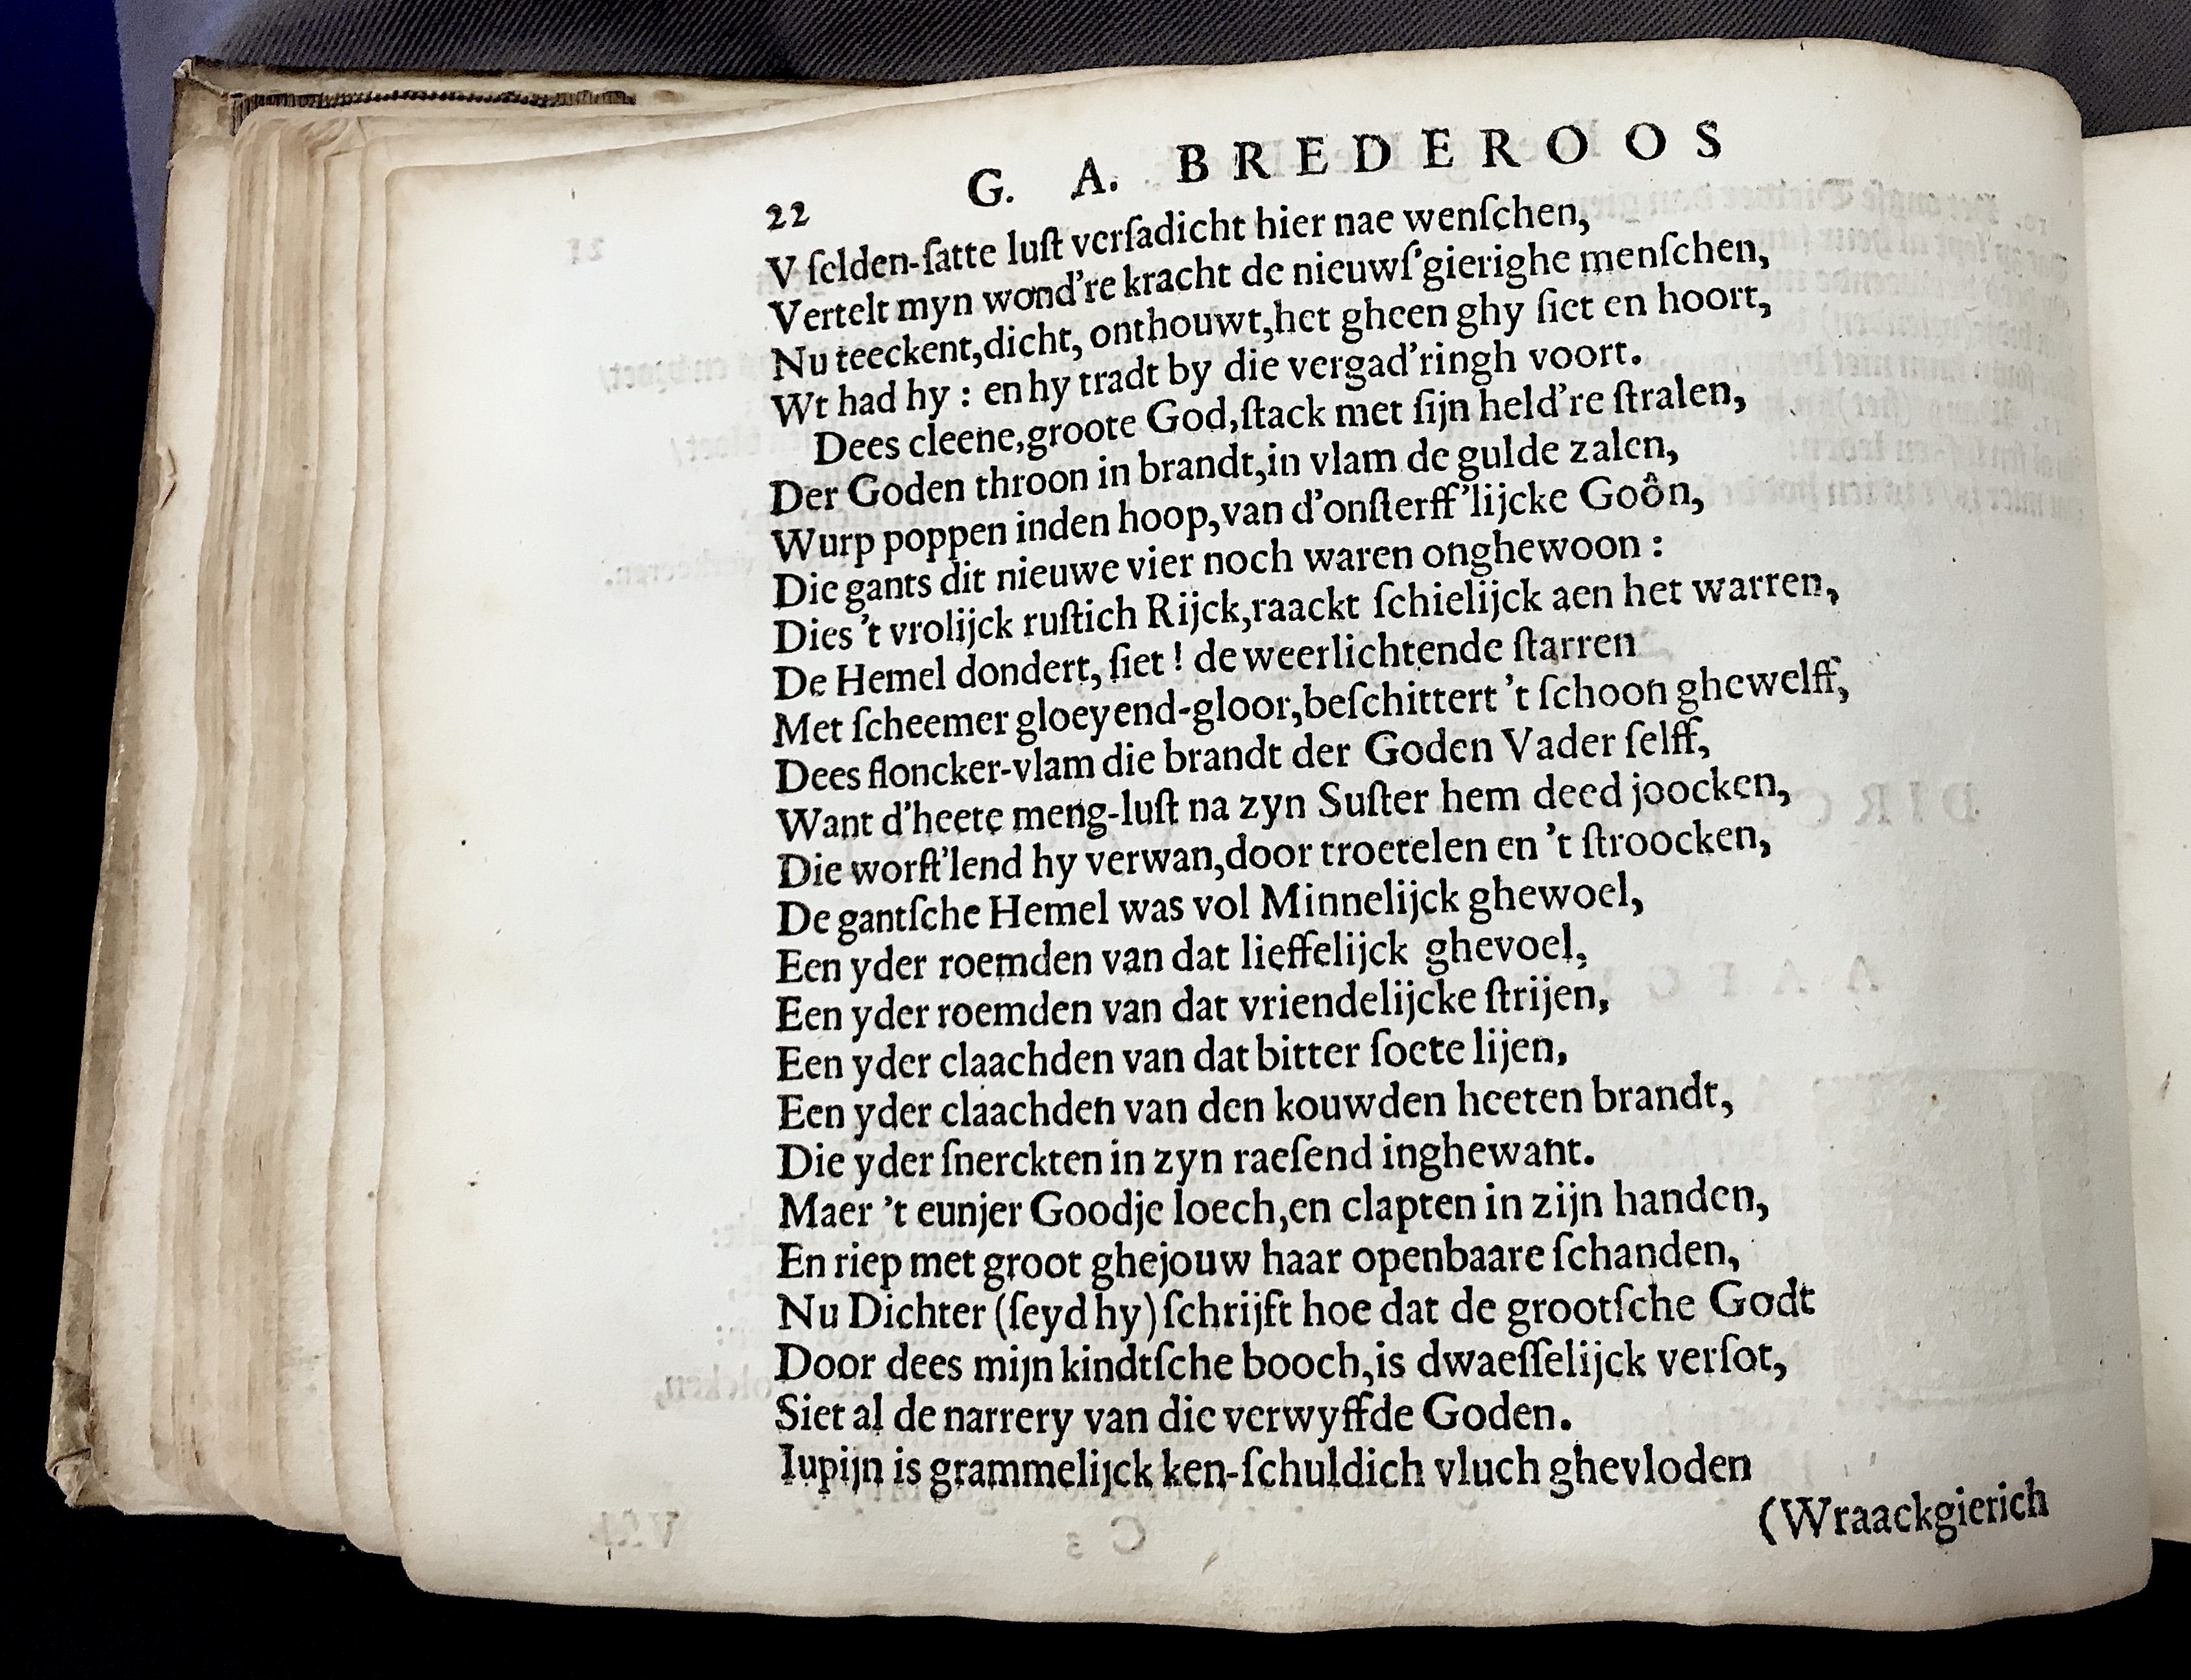 22 G. A. BREDEROOS
V ſelden-ſatte luſt verſadicht hier nae wenſchen,
Vertelt myn wond’re kracht de nieuwſ’gierighe menſchen,
Nu teeckent,dicht, onthouwt,het gheen ghy ſiet en hoort,
Wt had hy : en hy tradt by die vergad’ringh voort.
Dees cleene,groote God,ſtack met ſijn held’re ſtralen,
Der Goden throon in brandt,in vlam de gulde zalen,
Wurp poppen inden hoop,van d’onſterff’lijcke Goôn,
Die gants dit nieuwe vier noch waren onghewoon :
Dies ’t vrolijck ruſtich Rijck,raackt ſchielijck aen het warren,
De Hemel dondert, ſiet ! de weerlichtende ſtarren
Met ſcheemer gloeyend-gloor,beſchittert ’t ſchoon ghewelff,
Dees floncker-vlam die brandt der Goden Vader ſelff,
Want d’heete meng-luſt na zyn Suſter hem deed joocken,
Die worſt’lend hy verwan,door troetelen en ’t ſtroocken,
De gantſche Hemel was vol Minnelijck ghewoel,
Een yder roemden van dat lieffelijck ghevoel,
Een yder roemden van dat vriendelijcke ſtrijen,
Een yder claachden van dat bitter ſoete lijen,
Een yder claachden van den kouwden heeten brandt,
Die yder ſnerckten in zyn raeſend inghewant.
Maer ’t eunjer Goodje loech,en clapten in zijn handen,
En riep met groot ghejouw haar openbaare ſchanden,
Nu Dichter (ſeyd hy) ſchrijft hoe dat de grootſche Godt
Door dees mijn kindtſche booch,is dwaeſſelijck verſot,
Siet al de narrery van die verwyffde Goden.
Iupijn is grammelijck ken-ſchuldich vluch ghevloden
(Wraackgierich